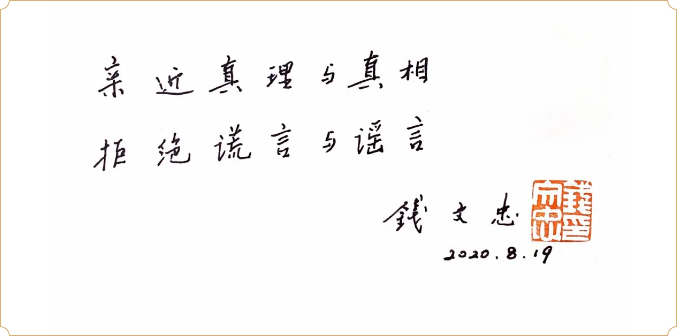 亲近真理与真相
拒绝谎言与谣言
錢文忠
2020.8.19
錢文忠印